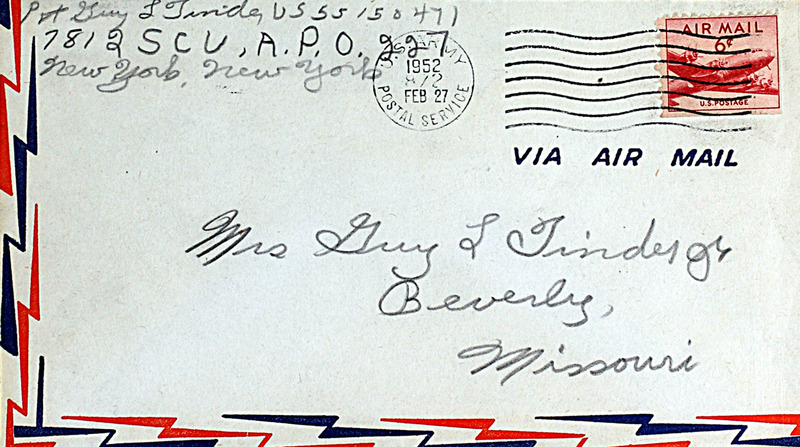 Pvt Guy L Tinder, US 55 150 471
7812 SCU, A.P.O. 227
New York, New York
U.S. ARMY
1952
FEB 27
POSTAL SERVICE
AIR MAIL
6¢
U.S. POSTAGE
VIA AIR MAIL
Mrs Guy L Tinder Jr
Beverly,
Missouri